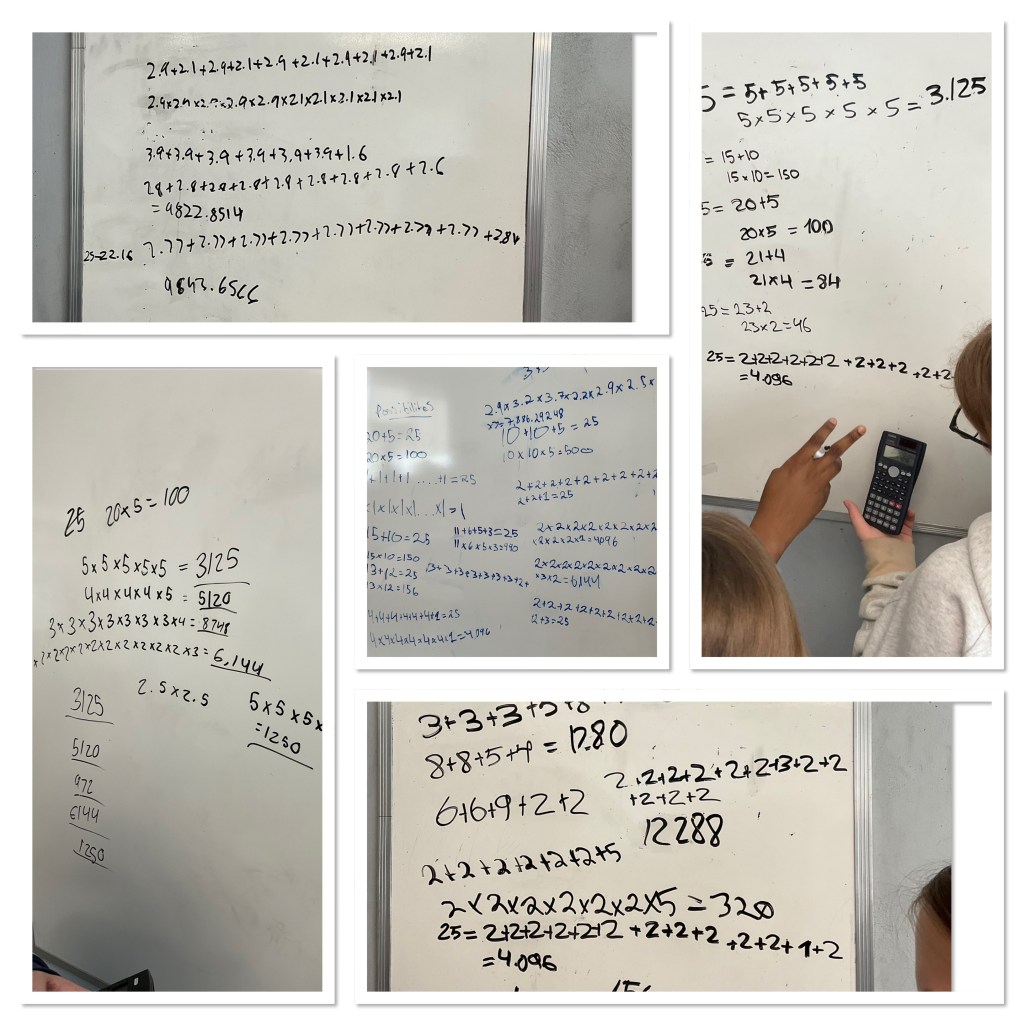 2.9+2.1+2.9+2.1+2.9+2.1+2.9+2.1+2.9+2.1
2.9×2.9×2.9×2.9×2.9×2.1×2.1×2.1×2.1×2.1
3.9+3.9+3.9+3.9+3.9+3.9+1.6
2.8+2.8+2.8+2.8+2.8+2.8+2.8+2.8+2.6
=9822.8514
25-22.16 2.77+2.77+2.77+2.77+2.77+2.77+2.77+2.77+2.84
5=5+5+5+5+5
5×5×5×5×5=3.125
=15+10
15×10=150
5=20+5
20×5=100
=21+4
21×4=84
25=23+2
23×2=46
25=2+2+2+2+2+2+2+2+2+2+2
=4.096
25 20×5=100
5×5×5×5×5=3125
4×4×4×4×5=5120
3×3×3×3×3×3×3×4=8748
×2×2×2×2×2×2×2×2×2×2×3=6.144
2.5×2.5
5×5×5×
=1250
3125
5120
972
6144
1250
Possibilites
20+5=25
20×5=100
+1+1+1....+1=25
×1×1×1×1...×1=1
15+10=25
15×10=150
13+12=25
13×12=156
4+4+4+4+4+4+1=25
4×4×4×4×4×4×1=4.096
2.9×3.2×3.7×2.2×2.9×2.5×
10+10+5=25
10×10×5=500
11+6+5+3=25
11×6×5×3=990
2+2+2+2+2+2+2+2+2+
2+2+1=25
2×2×2×2×2×2×2×2
×2×2×2×2=4096
2×2×2×2×2×2×2×2×2
×3×2=6.144
2+2+2+2+2+2+2+2+2+
2+3=25
3+3+3+5+8
8+8+5+4=1280
6+6+9+2+2
2+2+2+2+2+2+3+2+2
+2+2+2
12288
2+2+2+2+2+2+5
2×2×2×2×2×2×5=320
25=2+2+2+2+2+2+2+2+2+2+2+1+2
=4.096